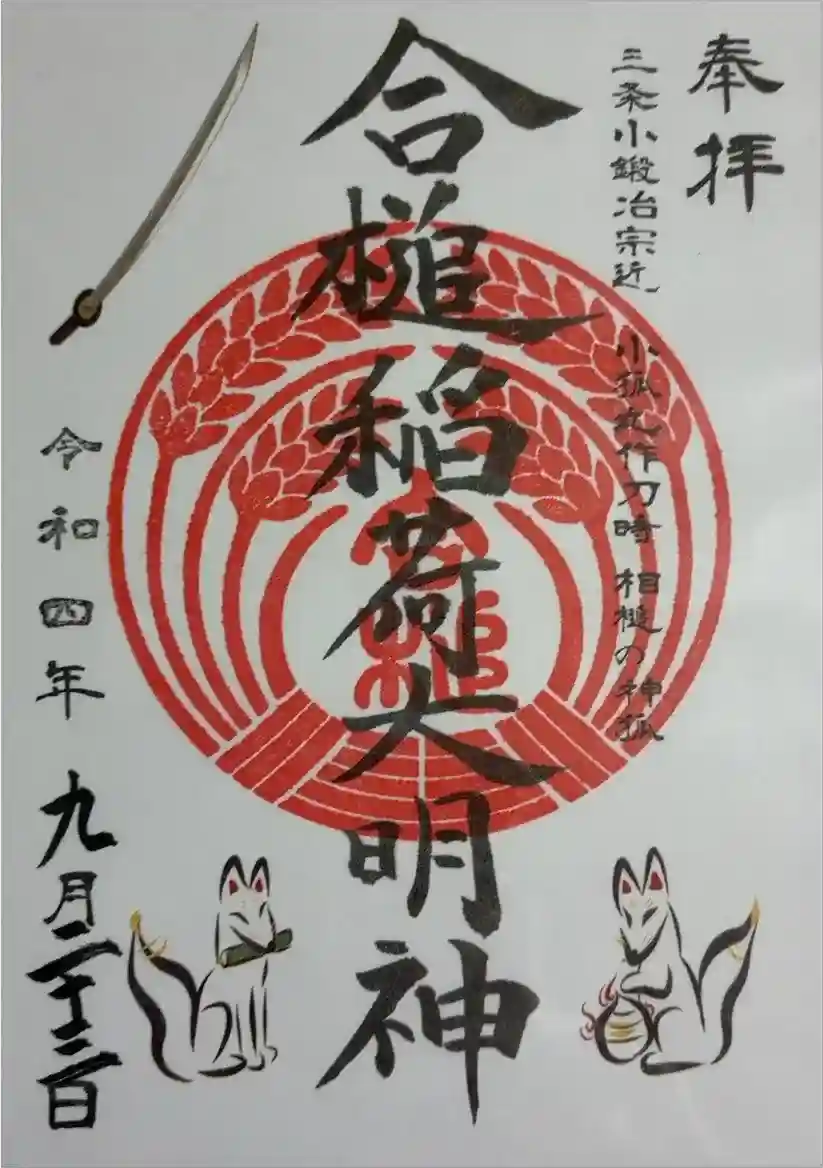 奉拝
三条小鍛冶宗近 小狐丸作刀時 相槌の神狐
合槌稲荷大明神
令和四年 九月二十三日